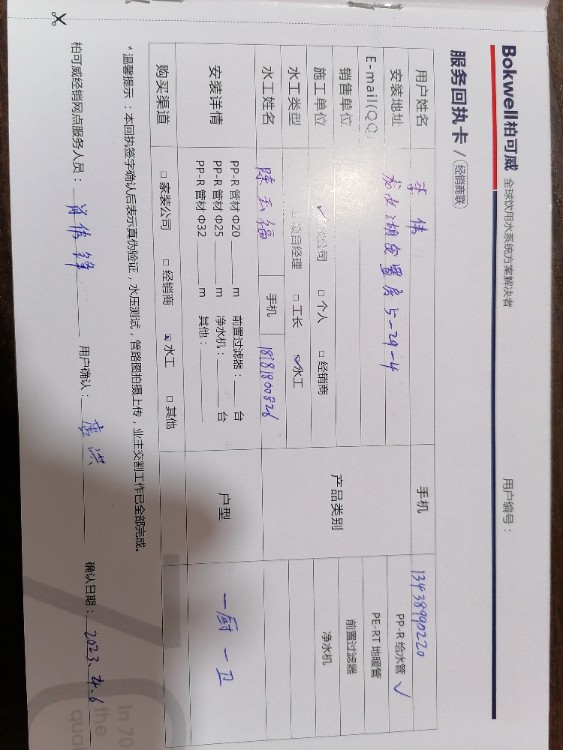 Bokwell柏可威 全球饮用水系统方案解决者
用户编号：
服务回执卡 / 经销商联
用户姓名 李伟 手机 13438990220
安装地址 龙水湖安置房5-29-4
E-mail(QQ)
销售单位
施工单位 公司 □ 个人 □ 经销商
水工类型 项目经理 □ 工长 ✓水工
水工姓名 陈五福 手机 18181800828
产品类别 PP-R 给水管 ✓
PE-RT 地暖管
前置过滤器
净水机
安装详情 PP-R 管材 Φ20 m 前置过滤器： 台
PP-R 管材 Φ25 m 净水机： 台
PP-R 管材 Φ32 m 其他：
户型 一厨一卫
购买渠道 □ 家装公司 □ 经销商 水工 □ 其他
*温馨提示：本回执签字确认后表示真伪验证，水压测试，管路图拍摄上传，业主交割工作已全部完成。
柏可威经销网点服务人员： 用户确认： 确认日期：2023.4.6
In 70
the
qual